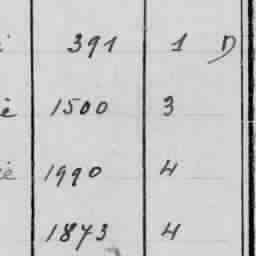 391 1 D
1500 3
1990 4
1873 4